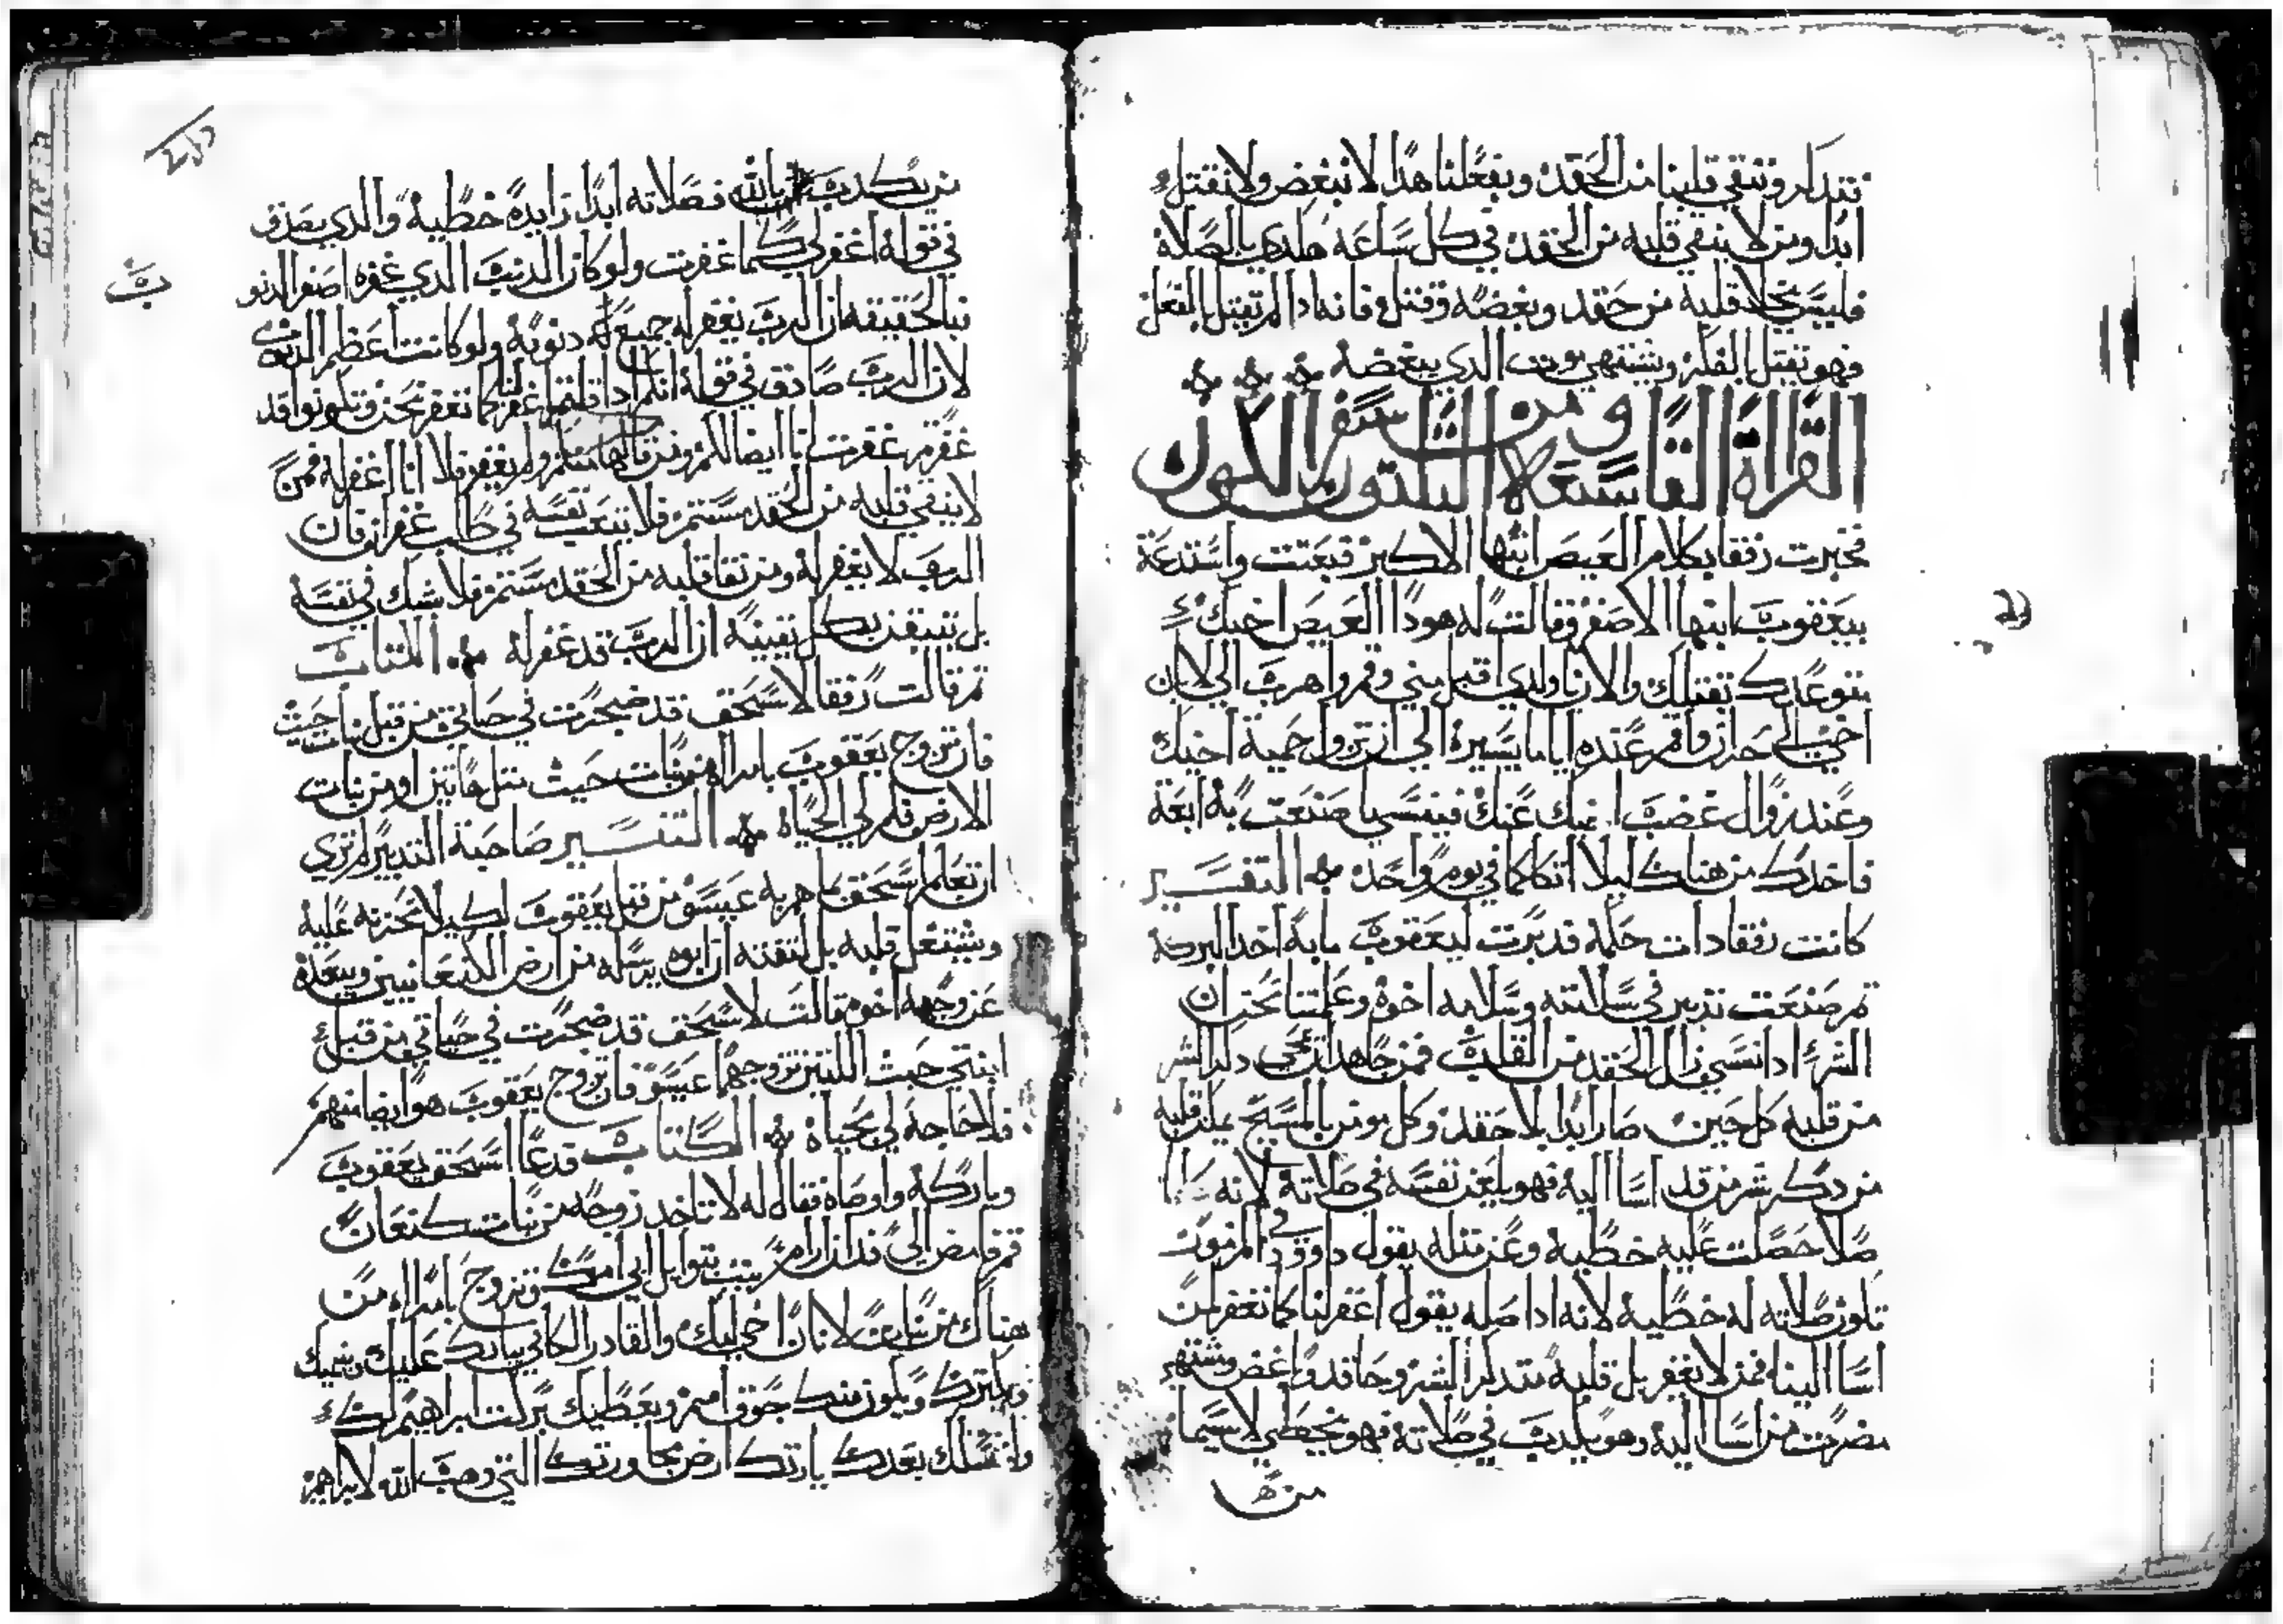 نتدارو ننقي قلبنا من الحقد وبفعلنا هدا لا نبغض ولا نقتل
ابدا ومن لا ينقي قلبه من الحقد في كل ساعة هلدي بالصلاة
فليس يخلا قلبه من حقد وبغضه وقتل فانه ادا لم يقتل بالفعل
فهو يقتل بالفكر ويشتهي موت الدي يبغضه
القراة التاسعة والثلتون من سفر الكون
فخبرت رفقا بكلام العيص ابنها الاكبر فبعتت واستدعة
بيعقوب ابنها الاصغر وقالت له هودا العيص اخيك
يتوعدك بقتلك والان يا ولدي اقبل مني وقم واهرب الي لابان
اخي الي حران واقم عنده اياما يسيرة الي ان تزول حمية اخيك
وعند زوال غضب اخيك عنك فينسي ما صنعت به ابعة
فاخدك من هناك ليلا اتكلكما في يوم واحد التفسير
كانت رفقا دات حكمه قد برت ليعقوب بابه اخد البركة
تم صنعت تدبير في سلامته وسلامه اخوه وعلمتنا نحن ان
الشر ادا نسي زال الحقد من القلب فمن جاهد ان يمحي دكر الشر
من قلبه كل حين صار ابدا بلا حقد وكل مومن بالمسيح يملا قلبه
من دكر شر من قد اسا اليه فهو يلعن نفسه في صلاته لانه
صلا حصلت عليه خطيه وعن متله يقول داوود في المزمور
تكون صلاته له خطية لانه ادا صله يقول اغفر لنا كما نغفر لمن
اسا الينا فمن لا يغفر بل قلبه متدكر الشر وحاقد وباغض ومشتهي
مضرت من اسا اليه وهو يكدب في صلاته فهو يخطي لا سيما
من
من يكدب بالله فصلاته ابدا زايده خطيه والدي يصدق
في قوله اغفر لي كما غفرت ولو كان الدنب الدي غفره اصغر الدنو
ب
فبالحقيقه ان الرب يغفر له جميع دنوبه ولو كانت اعظم الدنوب
لان الرب صادق في قوله انكم ادا قلتم اغفر لنا كما نغفر نحن وتكونوا قد
غفرتم غفرت انا ايضا لكم ومن قالها منكم ولم يغفر فلا انا اغفر له فمن
لا ينقي قلبه من الحقد مستمر فلا يتعب نفسه في طلب غفران فان
الرب لا يغفر له ومن نقا قلبه من الحقد مستمر فلا يشك في نفسه
بل يتيقن بكل يقينه ان الرب قد غفر له الكتاب
تم قالت رفقا لاسحق قد ضجرت في حياتي من قبل بنات حيث
فان تزوج يعقوب بامراه من بنات حيث متل هاتين او من بنات
الارض فلم لي الحياه التفسير صاحبة التدبير لم تري
ان تعلم اسحق بما هم به عيسو من قبل يعقوب لكيلا تحزنه عليه
ويشتعل قلبه بل لتقنه ان ابوه يرسله من ارض الكنعانيين ويبعده
عن وجه اخوه قالت لاسحق قد ضجرت في حياتي من قبل
ابنتي حيث اللتين تزوجهما عيسو فان تزوج يعقوب هو ايضا منهم
فلا حاجة لي بحياه الكتاب فدعا اسحق يعقوب
وباركه واوصاه فقال له لا تاخد زوجه من بنات كنعان
قم فامض الي فدان ارام بيت بتوايل ابي امك وتزوج بامراه من
هناك من بنات لابان اخي امك والقادر الكافي يبارك عليك وينميك
ويكترك ويكون منك جوق امم ويعطيك بركت ابراهيم لك
ولنسلك بعدك يارتك ارض مجاورتك التي وهب الله لابراهيم